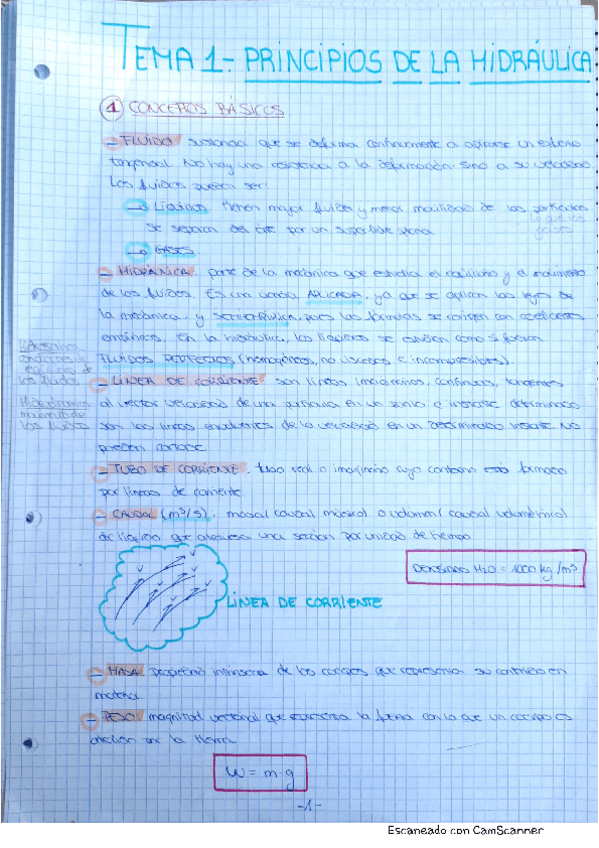 TEMA 1.- PRINCIPIOS DE LA HIDRÁULICA
1 CONCEPTOS BÁSICOS
- FLUIDO: sustancia que se deforma continuamente al aplicarse un esfuerzo
tangencial. No hay una resistencia a la deformación sino a su velocidad
Los fluidos pueden ser:
→ Líquidos: tienen mayor fluidez y menor movilidad de las partículas
que los
gases
Se separan del aire por una superficie plana
→ GASES
- HIDRÁULICA: parte de la mecánica que estudia el equilibrio y el movimiento
de los fluidos. Es una ciencia APLICADA, ya que se aplican las leyes de
la mecánica, y SEMIEMPÍRICA, pues las fórmulas se corrigen con coeficientes
empíricos. En la hidráulica, los líquidos se estudian como si fuesen
FLUIDOS PERFECTOS (homogéneos, no viscosos e incompresibles).
Hidrostática
condiciones de
equilibrio de
los fluidos
Hidrodinámica
movimiento de
los fluidos
- LÍNEA DE CORRIENTE: son líneas imaginarias, continuas, tangentes
al vector velocidad de una partícula en un punto e instante determinado
son las líneas envolventes de la velocidad en un determinado instante. No
pueden cortarse
- TUBO DE CORRIENTE: tubo real o imaginario cuyo contorno está formado
por líneas de corriente
- CAUDAL (m³/s): masa (caudal másico) o volumen (caudal volumétrico)
de líquido que atraviesa una sección por unidad de tiempo
DENSIDAD H2O = 1000 kg/m³
LÍNEA DE CORRIENTE
- MASA: propiedad intrínseca de los cuerpos que representa su contenido en
materia
- PESO: magnitud vectorial que representa la fuerza con la que un cuerpo es
atraído por la tierra
W = m·g
-1-
Escaneado con CamScanner